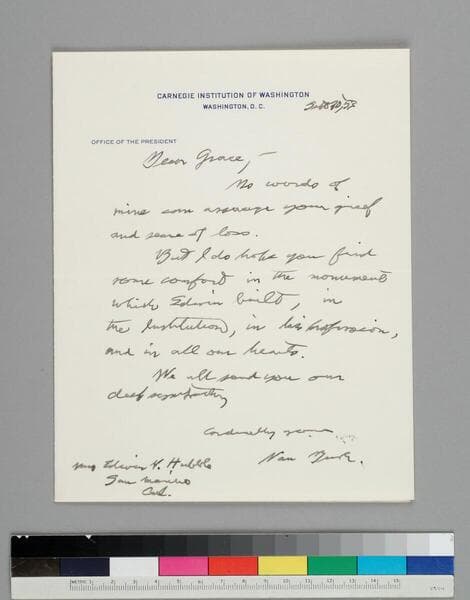 CARNEGIE INSTITUTION OF WASHINGTON
WASHINGTON, D. C.
OFFICE OF THE PRESIDENT
Dear Grace,-
No words of
mine can assuage your grief
and sense of loss.
But I do hope you find
some comfort in the monument
which Edwin built, in
the Institution, in his profession,
and in all our hearts.
We all send you our
deep sympathy
Cordially yours
Van Bush.
Mrs Edwin P. Hubble
San Marino
Cal.
METRIC 1 2 3 4 5 6 7 8 9 10 11 12 13 14 15